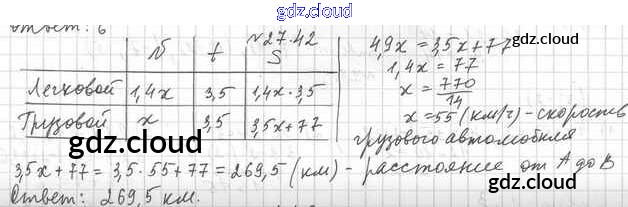 gdz.cloud
ответ: 6
№27.42
v t S
Легковой 1,4x 3,5 1,4x·3,5
Грузовой x 3,5 3,5x+77
4,9x = 3,5x+77
1,4x = 77
x = 770/14
x = 55 (км/г) - скорость
грузового автомобиля
3,5x+77 = 3,5·55+77 = 269,5 (км) - расстояние от A до B
Ответ: 269,5 км.
gdz.cloud
gdz.cloud
gdz.cloud
gdz.cloud
gdz.cloud